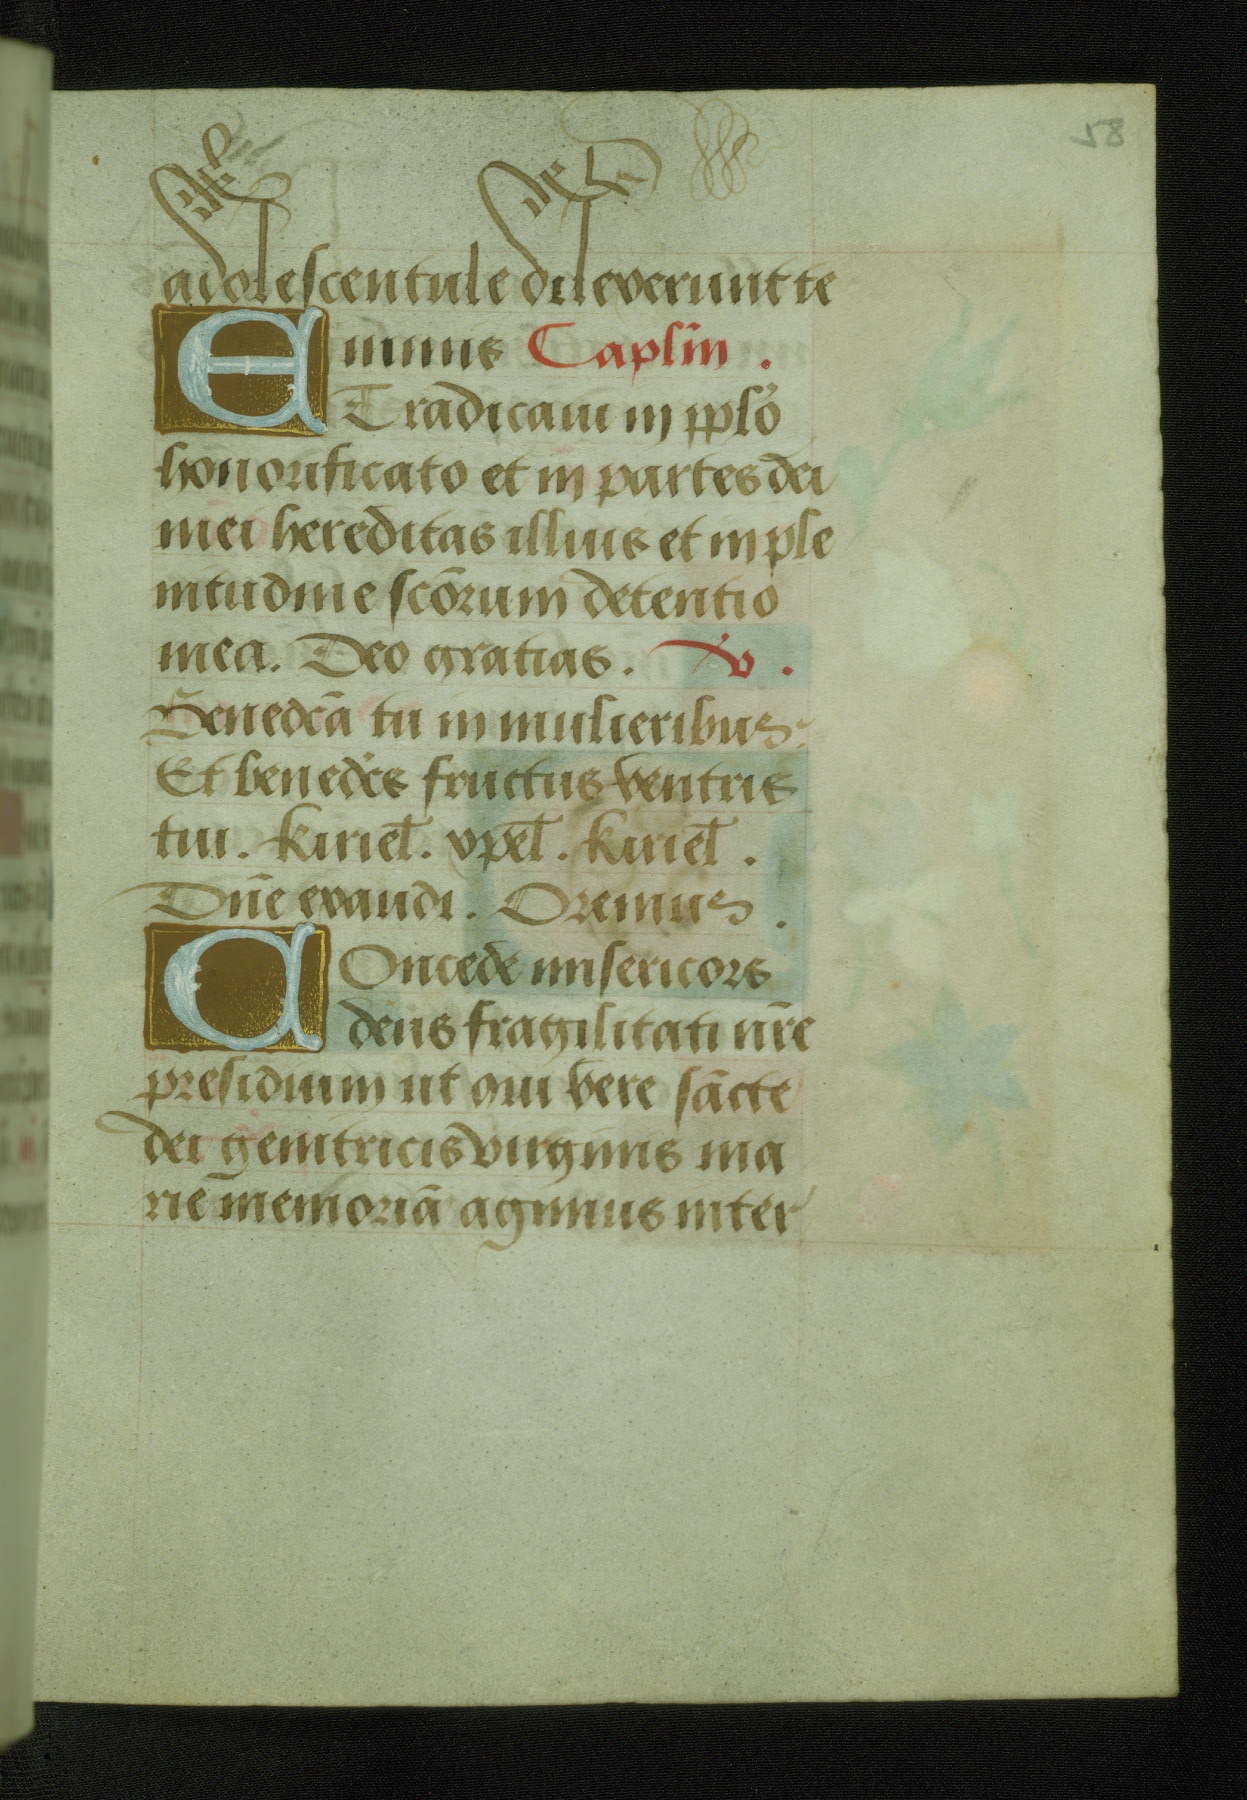 58
adolescentule dilexerunt te
nimis Caplm̄ .
ET radicaui in pplo
honorificato et in partes dei
mei hereditas illius et in ple
nitudine scōrum detentio
mea. Deo gratias. v .
Benedcā tu in mulieribus
Et benedcs fructus ventris
tui. kiriel. xpel. kiriel .
Dn̄e exaudi. Oremus .
COncede misericors
deus fragilitati nr̄e
presidium ut qui vere sācte
dei genitricis virginis ma
rie memoriā agimus inter